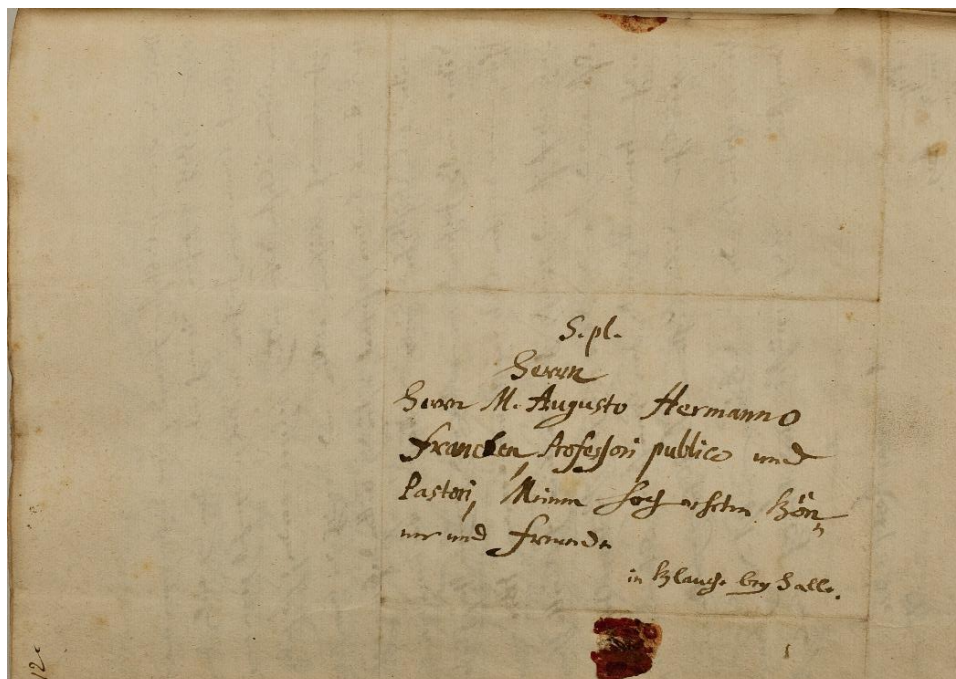 S. pl.
Herrn
Herrn M. Augusto Hermanno
Francken, Professori publico und
Pastori, Meinem hochgeehrten Gön-
ner und Freunde
in Glauche bey Halle.
12